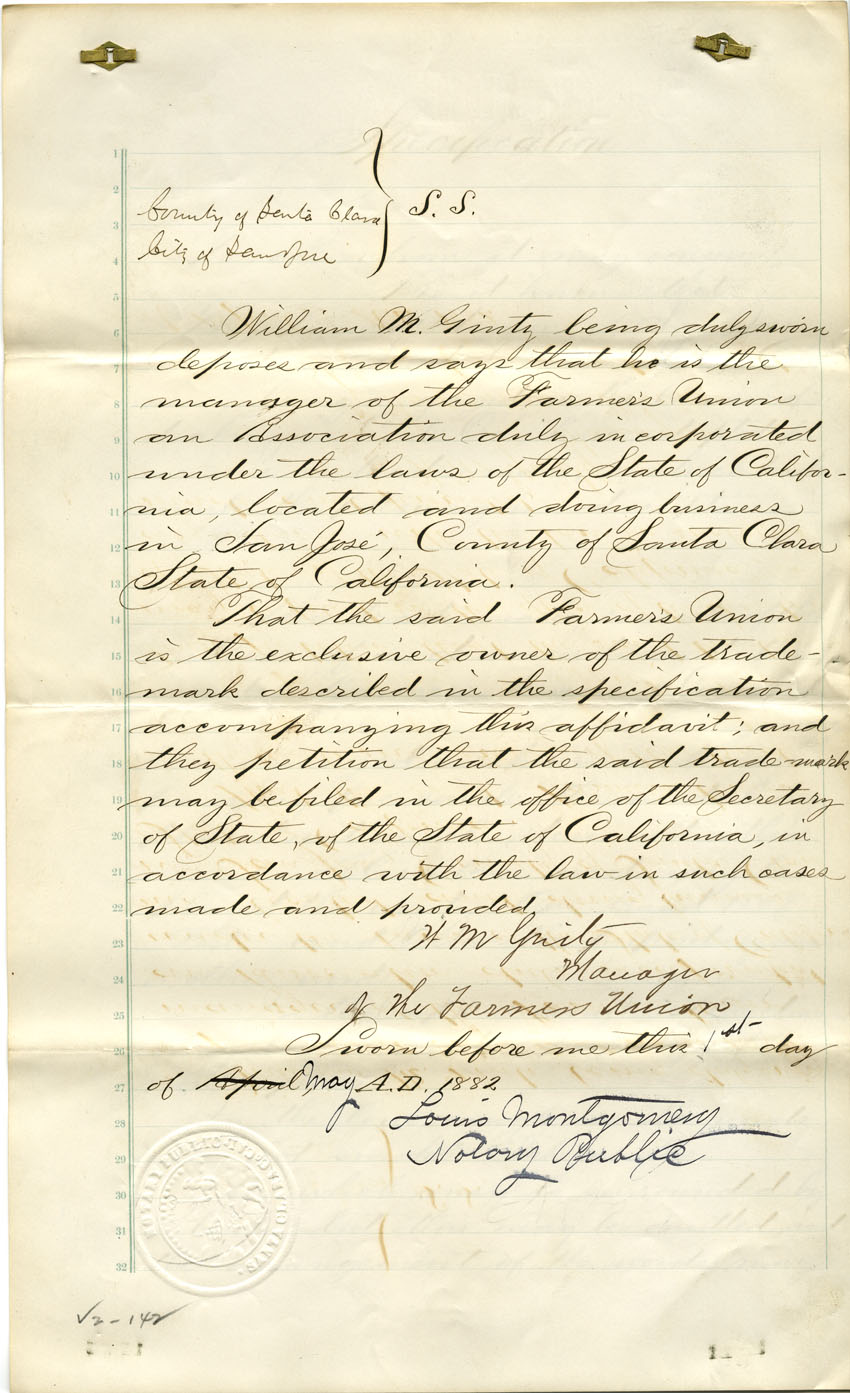 County of Santa Clara
City of San Jose
S. S.
William M. Ginty being duly sworn
deposes and says that he is the
manager of the Farmer's Union
an Association duly incorporated
under the laws of the State of Califor-
nia, located and doing business
in San José, County of Santa Clara
State of California.
That the said Farmer's Union
is the exclusive owner of the trade-
mark described in the specification
accompanying this affidavit; and
they petition that the said trade-mark
may be filed in the office of the Secretary
of State, of the State of California, in
accordance with the law in such cases
made and provided
W M Ginty
Manager
of the Farmers Union
Sworn before me this 1st day
of April May A.D. 1882
Louis Montgomery
Notary Public
1
2
3
4
5
6
7
8
9
10
11
12
13
14
15
16
17
18
19
20
21
22
23
24
25
26
27
28
29
30
31
32
√2-142